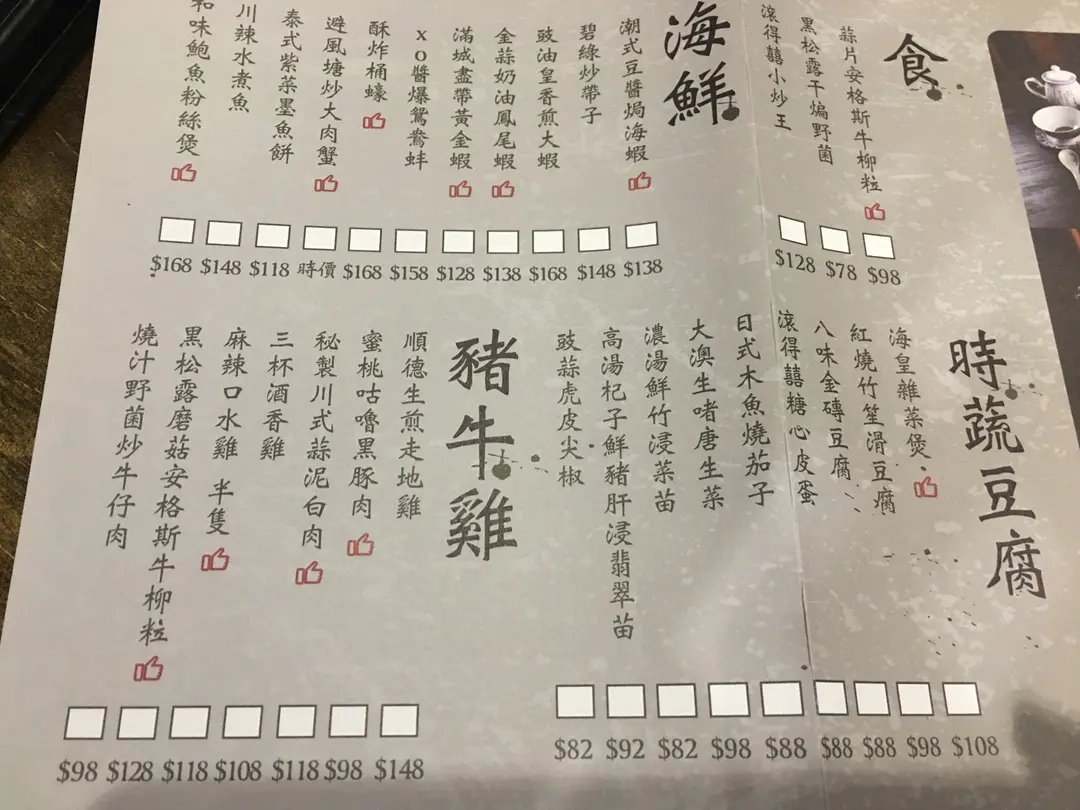 食
蒜片安格斯牛柳粒
黑松露干煸野菌
滾得囍小炒王
$98
$78
$128
海鮮
潮式豆醬焗海蝦
碧綠炒帶子
豉油皇香煎大蝦
金蒜奶油鳳尾蝦
滿城盡帶黃金蝦
XO醬爆鴛鴦蚌
酥炸桶蠔
避風塘炒大肉蟹
泰式紫菜墨魚餅
川辣水煮魚
和味鮑魚粉絲煲
$138
$148
$168
$138
$128
$158
$168
時價
$118
$148
$168
時蔬豆腐
海皇雜菜煲
紅燒竹笙滑豆腐
八味金磚豆腐
滾得囍糖心皮蛋
日式木魚燒茄子
大澳生啫唐生菜
濃湯鮮竹浸菜苗
高湯杞子鮮豬肝浸翡翠苗
豉蒜虎皮尖椒
$108
$98
$88
$88
$88
$98
$82
$92
$82
豬牛雞
順德生煎走地雞
蜜桃咕嚕黑豚肉
秘製川式蒜泥白肉
三杯酒香雞
麻辣口水雞 半隻
黑松露磨菇安格斯牛柳粒
燒汁野菌炒牛仔肉
$148
$98
$118
$108
$118
$128
$98